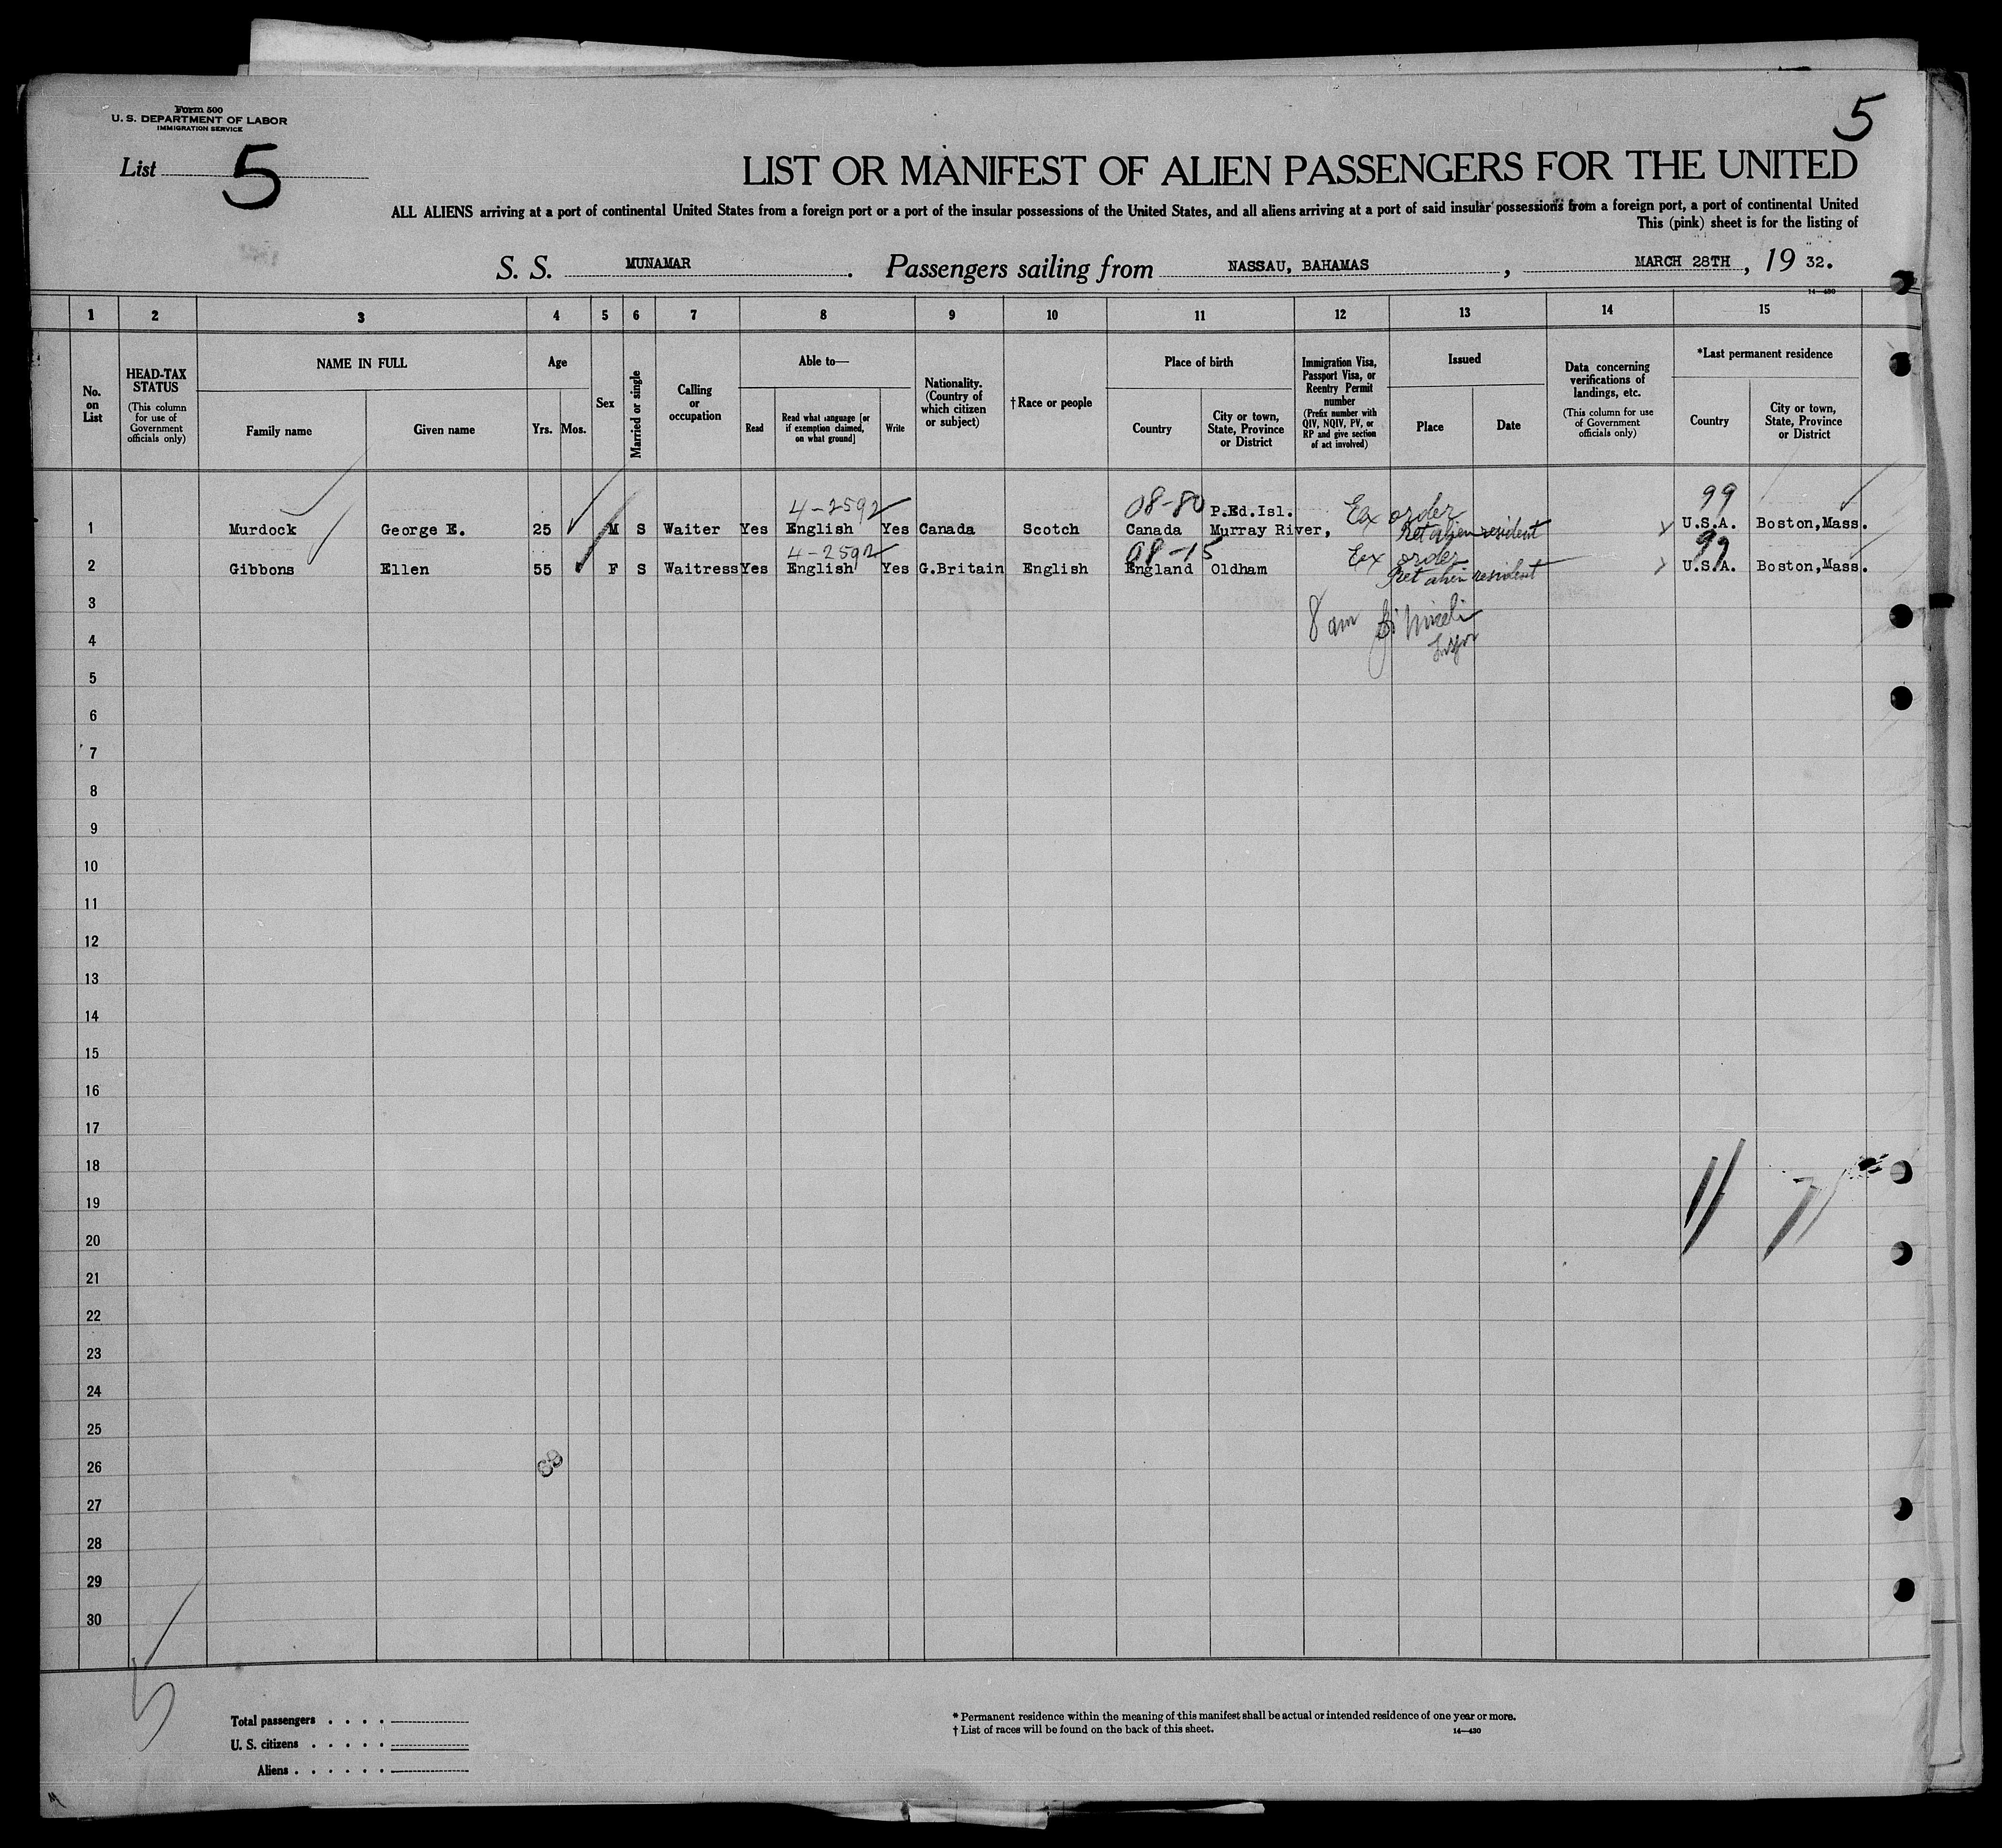 Form 500
U. S. DEPARTMENT OF LABOR
IMMIGRATION SERVICE
5
List 5
LIST OR MANIFEST OF ALIEN PASSENGERS FOR THE UNITED
ALL ALIENS arriving at a port of continental United States from a foreign port or a port of the insular possessions of the United States, and all aliens arriving at a port of said insular possessions from a foreign port, a port of continental United
This (pink) sheet is for the listing of
S. S. MUNAMAR. Passengers sailing from NASSAU, BAHAMAS, MARCH 28TH, 19 32.
14—430
1 2 3 4 5 6 7 8 9 10 11 12 13 14 15
No. on List
HEAD-TAX STATUS
(This column for use of Government officials only)
NAME IN FULL
Family name Given name
Age
Yrs. Mos.
Sex
Married or single
Calling or occupation
Able to—
Read
Read what language [or if exemption claimed, on what ground]
Write
Nationality. (Country of which citizen or subject)
†Race or people
Place of birth
Country
City or town, State, Province or District
Immigration Visa, Passport Visa, or Reentry Permit number
(Prefix number with QIV, NQIV, PV, or RP and give section of act involved)
Issued
Place Date
Data concerning verifications of landings, etc.
(This column for use of Government officials only)
*Last permanent residence
Country
City or town, State, Province or District
4-2592 08-80 P.Ed.Isl. Ex order 99
1 Murdock George E. 25 M S Waiter Yes English Yes Canada Scotch Canada Murray River, Ret alien resident U.S.A. Boston,Mass.
4-2592 08-15 Ex order 99
2 Gibbons Ellen 55 F S Waitress Yes English Yes G.Britain English England Oldham Ret alien resident U.S.A. Boston,Mass.
3
8 am
4
5
6
7
8
9
10
11
12
13
14
15
16
17
18
19
20
21
22
23
24
25
26
27
28
29
30
Total passengers . . . .
U. S. citizens . . . . .
Aliens . . . . . .
* Permanent residence within the meaning of this manifest shall be actual or intended residence of one year or more.
† List of races will be found on the back of this sheet. 14—430